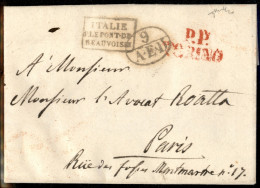 ITALIE
P. LE PONT-DE
BEAUVOISIN
9
A.E.D.
P.P.
TORINO
A Monsieur
Monsieur l'Avocat Roatta
Paris
Rüe des fossés Montmartre n° 17.